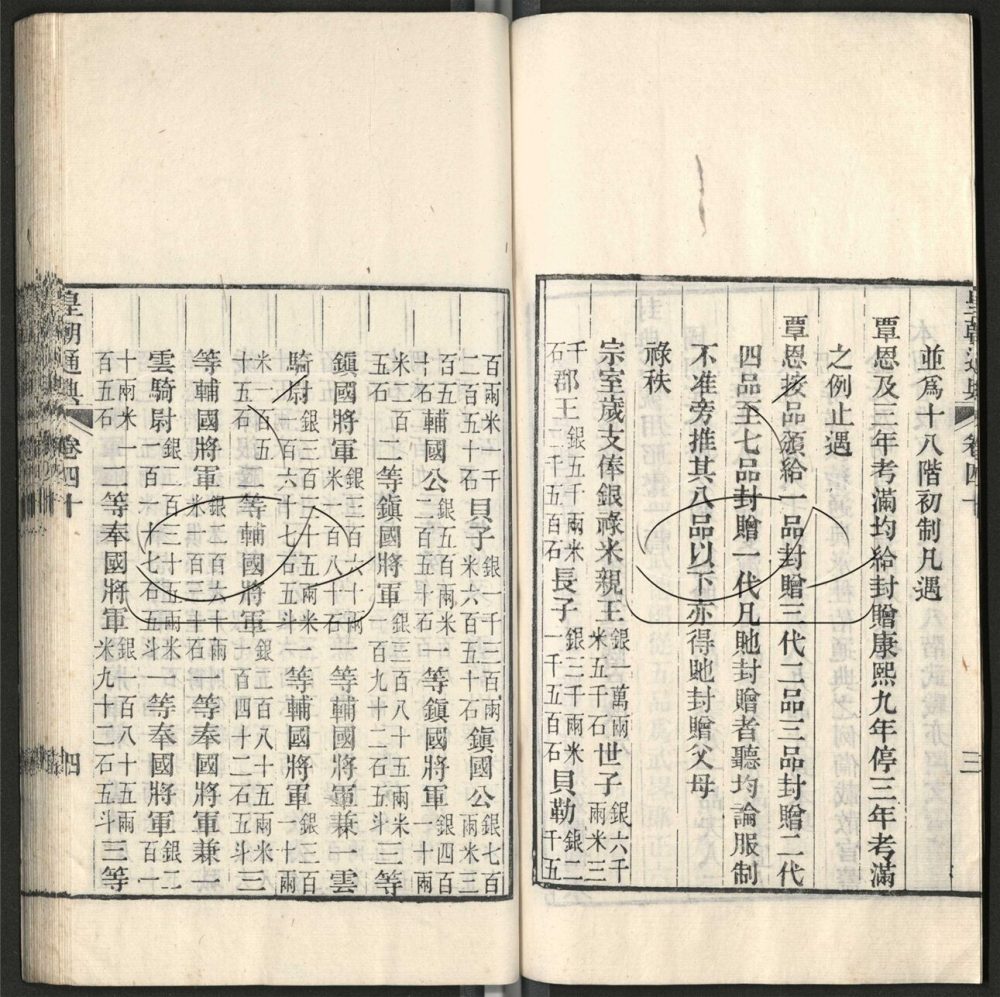 皇朝通典 卷四十 三
並爲十八階初制凡遇
覃恩及三年考滿均給封贈康熙九年停三年考滿
之例止遇
覃恩按品頒給一品封贈三代二品三品封贈二代
四品至七品封贈一代凡貤封贈者聽均論服制
不准旁推其八品以下亦得貤封贈父母
祿秩
宗室歲支俸銀祿米親王銀一萬兩米五千石世子銀六千兩米三
千石郡王銀五千兩米二千五百石長子銀三千兩米一千五百石貝勒銀二千五
百兩米一千二百五十石貝子銀一千三百兩米六百五十石鎮國公銀七百兩米三
百五十石輔國公銀五百兩米二百五十石一等鎮國將軍銀四百一十兩
米二百五石二等鎮國將軍銀三百八十五兩米一百九十二石五斗三等
鎮國將軍銀三百六十兩米一百八十石一等輔國將軍兼一雲
騎尉銀三百三十五兩米一百六十七石五斗一等輔國將軍銀三百一十兩
米一百五十五石二等輔國將軍銀二百八十五兩米一百四十二石五斗三
等輔國將軍銀二百六十兩米一百三十石一等奉國將軍兼一
雲騎尉銀二百三十五兩米一百一十七石五斗一等奉國將軍銀二百一
十兩米一百五石二等奉國將軍銀一百八十五兩米九十二石五斗三等
皇朝通典 卷四十 四